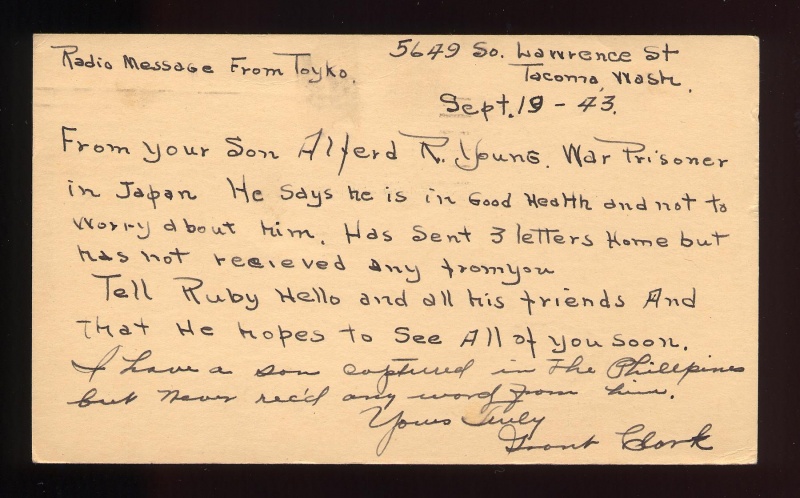 Radio Message From Toyko.
5649 So. Lawrence St
Tacoma, Wash.
Sept. 19 - 43.
From your Son Alferd R. Young. War Prisoner
in Japan He Says he is in Good Health and not to
Worry about him. Has Sent 3 letters Home but
has not recieved any from you
Tell Ruby Hello and all his friends And
That He Hopes to See All of you soon.
I have a son captured in the Phillpines
but never rec'd any word from him.
Yours Truly
Grant Clark